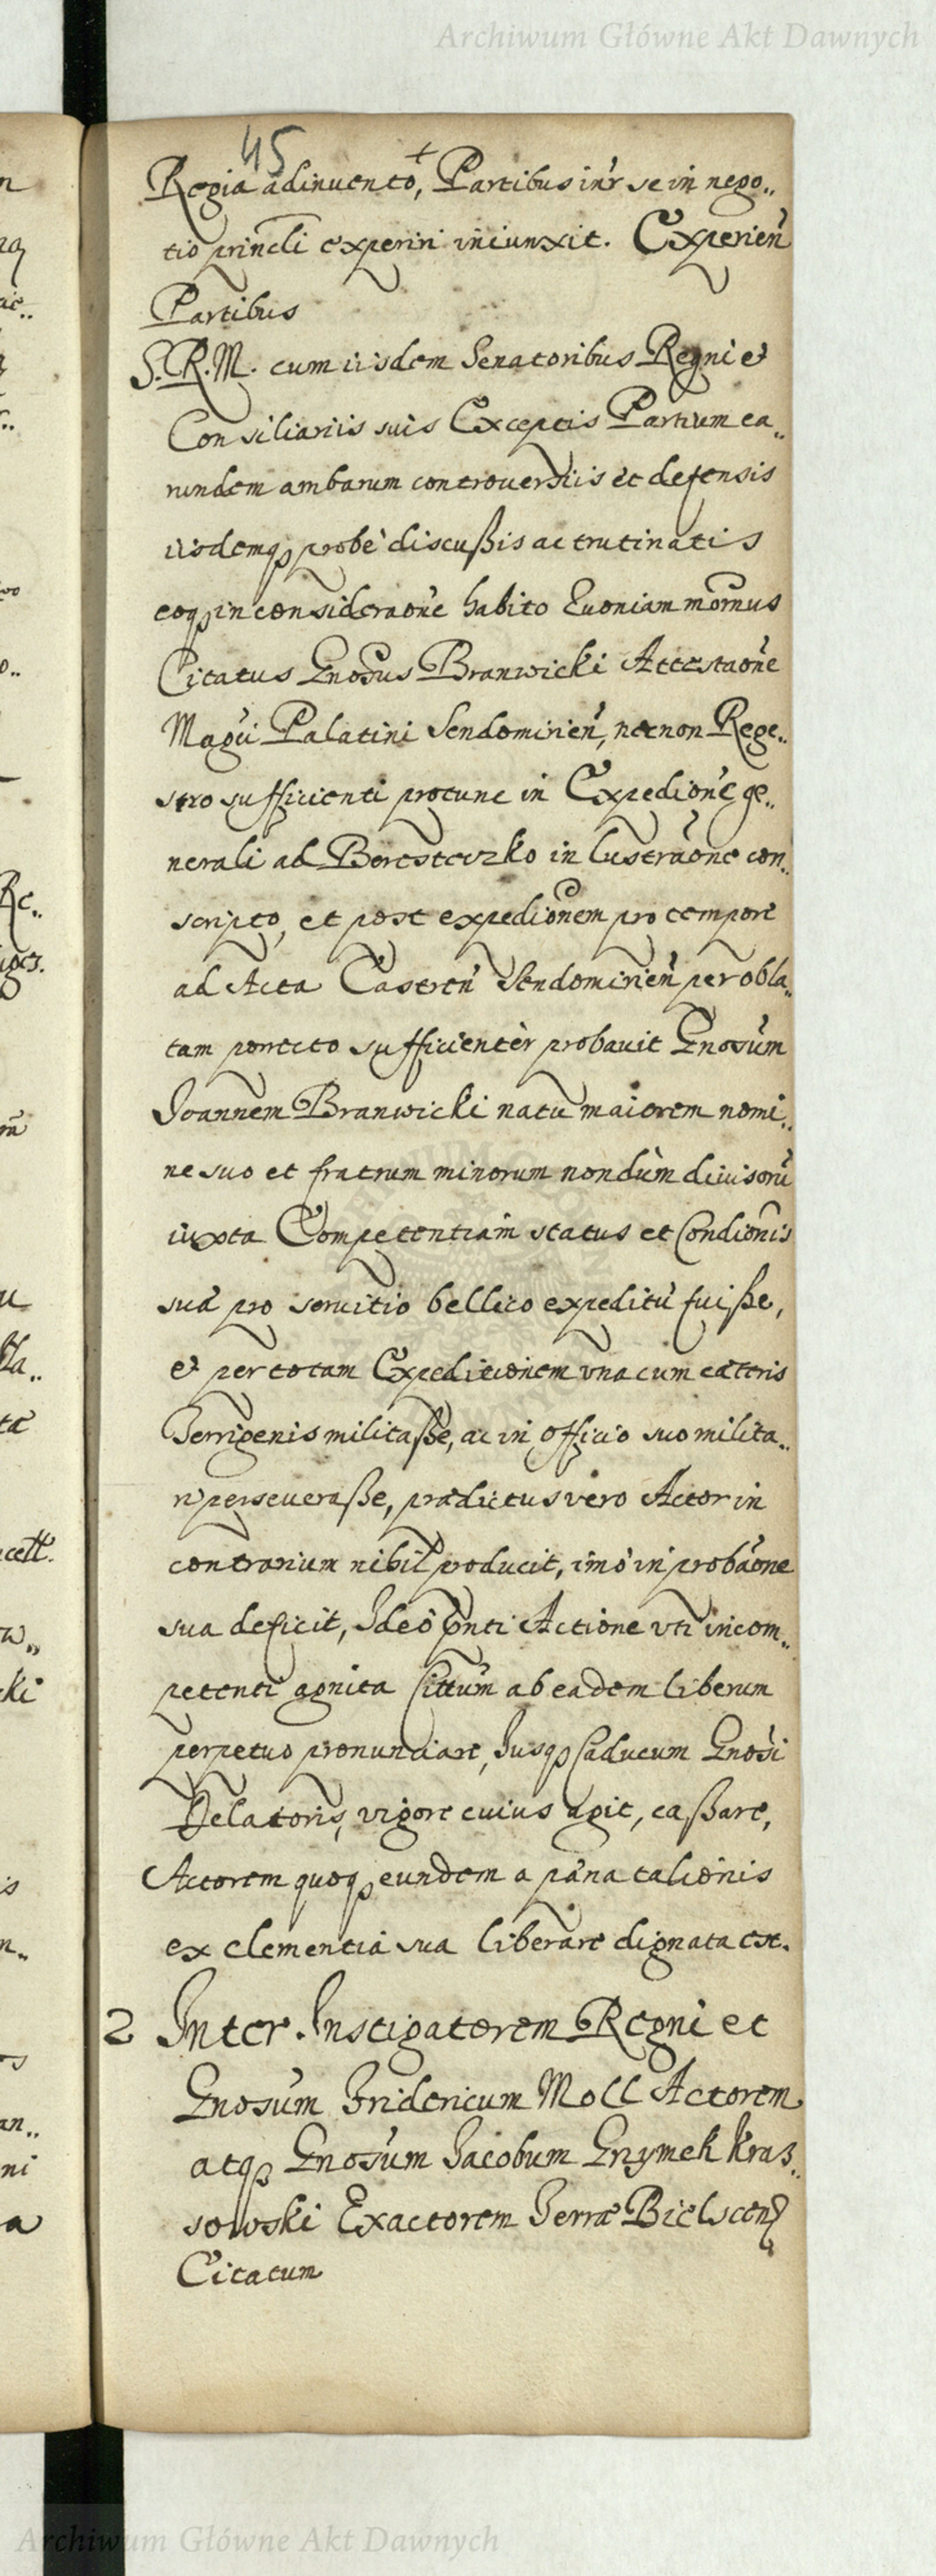 Archiwum Główne Akt Dawnych
45
Regia adinuento, Partibus intr se in nego„
tio princli experiri iniunxit. Experien
Partibus
S. R. M. cum iisdem Senatoribus Regni et
Consiliariis suis Exceptis Partium ea„
rundem ambarum controuersiis et defensis
iisdemq probe discußis ac trutinatis
eoq in consideraone habito
Citatus Gnosus Branwicki Attestaone
Magci Palatini Sendomirien, necnon Rege„
stro sufficienti protunc in Expedione ge„
nerali ad Beresteczko in lustraone con„
scripto, et post expedionem pro tempore
ad Acta Castren Sendomirien per obla„
tam porrecto sufficienter probauit Gnosum
Joannem Branwicki natu maiorem nomi„
ne suo et fratrum minorum nondum diuisoru
iuxta Competentiam status et Condionis
sua pro seruitio bellico expeditu fuiße,
et per totam Expeditionem vna cum cateris
Terrigenis militaße, ac in officio suo milita„
ri perseueraße, pradictus vero Actor in
contrarium nihil producit, imo in probaone
sua deficit, Ideo pnti Actione vti incom„
petenti agnita Cittum ab eadem liberum
perpetuo pronunciare, Jusq Caducum Gnosi
Delatoris, vigore cuius agit, caßare,
Actorem quoq eundem a pana talionis
ex clementia sua liberare dignata est.
2 Inter Instigatorem Regni et
Gnosum Fridericum Moll Actorem
atq Gnosum Jacobum Grymek Kras„
sowski Exactorem Terræ Bielscen
Citatum
Archiwum Główne Akt Dawnych